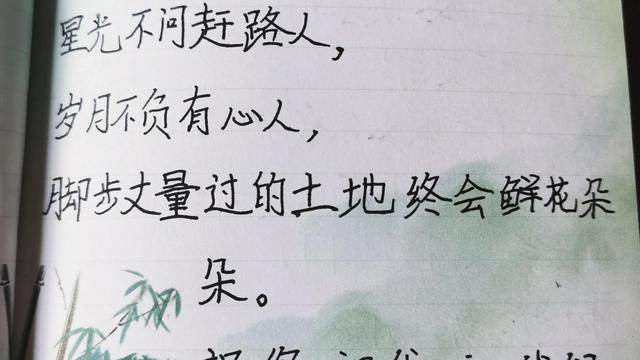 星光不问赶路人,
岁月不负有心人,
脚步丈量过的土地终会鲜花朵
朵。